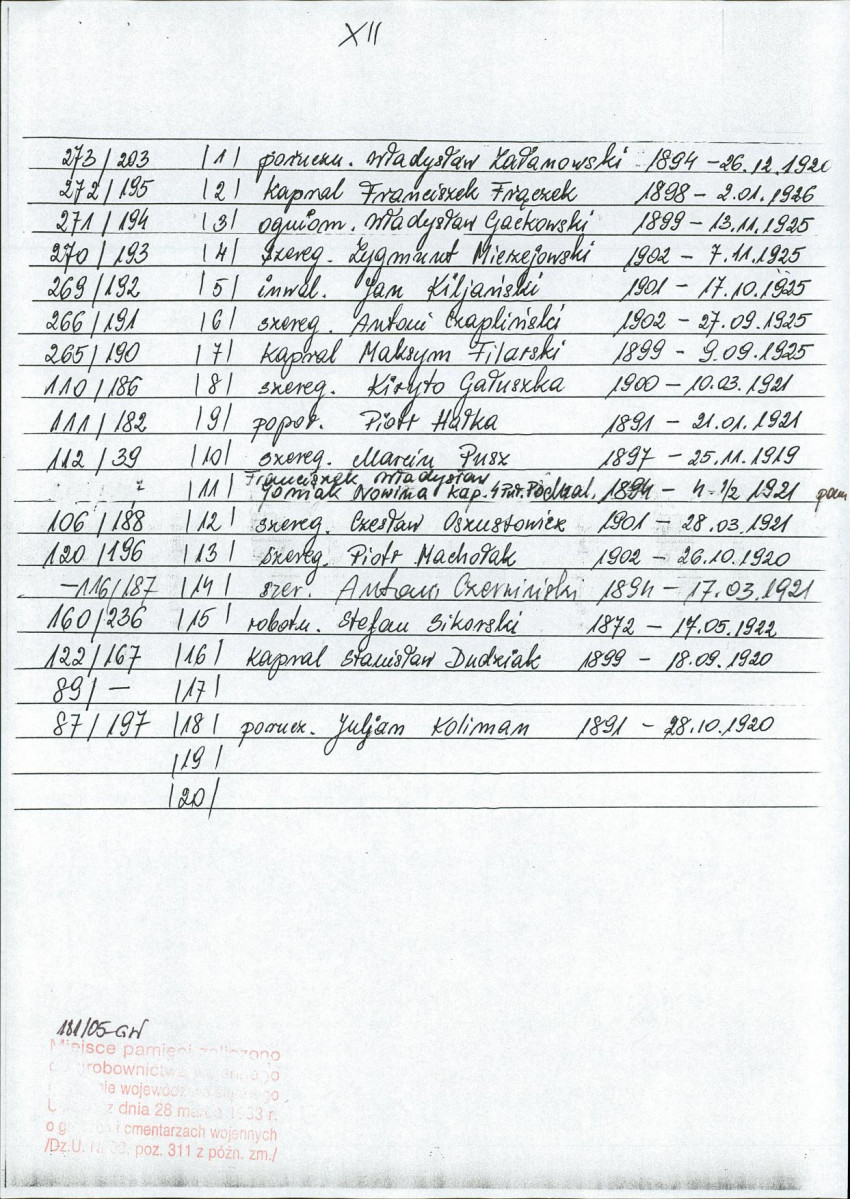 XII
273/203 |1| poruczn. Władysław Załanowski 1894 – 26.12.1920
272/195 |2| Kapral Franciszek Frączek 1898 – 2.01.1926
271/194 |3| ogniom. Władysław Gaćkowski 1899 – 13.11.1925
270/193 |4| szereg. Zygmunt Mierzejowski 1902 – 7.11.1925
269/192 |5| inwal. Jan Kiljański 1901 – 17.10.1925
266/191 |6| szereg. Antoni Czapliński 1902 – 27.09.1925
265/190 |7| Kapral Maksym Filarski 1899 – 9.09.1925
110/186 |8| szereg. Kiryło Gałuszka 1900 – 10.03.1921
111/182 |9| popor. Piotr Hałka 1891 – 21.01.1921
112/39 |10| szereg. Marcin Pusz 1897 – 25.11.1919
Franciszek Władysław
|11| Nowina kap. 1894 – 1921
106/188 |12| szereg. Czesław Oszustowicz 1901 – 28.03.1921
120/196 |13| szereg. Piotr Machołak 1902 – 26.10.1920
–116/187 |14| szer. Antoni Czerniński 1894 – 17.03.1921
160/236 |15| robotn. Stefan Sikorski 1872 – 17.05.1922
122/167 |16| Kapral Stanisław Dudziak 1899 – 18.09.1920
89/ – |17|
87/197 |18| porucz. Juljan Koliman 1891 – 28.10.1920
|19|
|20|
181/05-GW
Miejsce pamięci zaliczono
do grobownictwa
wojewódz
z dnia 28 marca 1933 r.
o i cmentarzach wojennych
/Dz.U. poz. 311 z późn. zm./